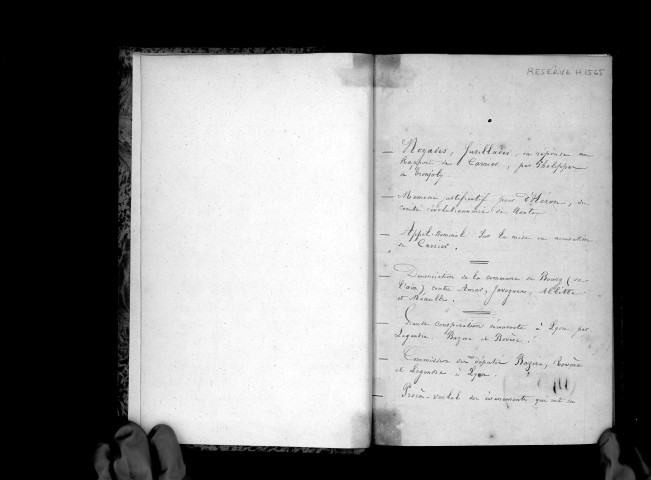 RESERVE H 1565
— Noyades, fusillades, ou réponse au
Rapport de Carrier, par Phelippes
de Tronjoly
— Mémoire justificatif pour d'Héron, du
comité révolutionnaire de Nantes
— Appel nominal sur la mise en accusation
de Carrier.
— Dénonciation de la commune de Bourg (de
l'ain) contre Amar, Javogues, Albitte
et Méaulle.
— Grande conspiration découverte à Lyon par
Legendre, Bazire et Rovère.
— Commission des députés Bazire, Rovère
et Legendre à Lyon.
— Procès-verbal des événements qui ont eu